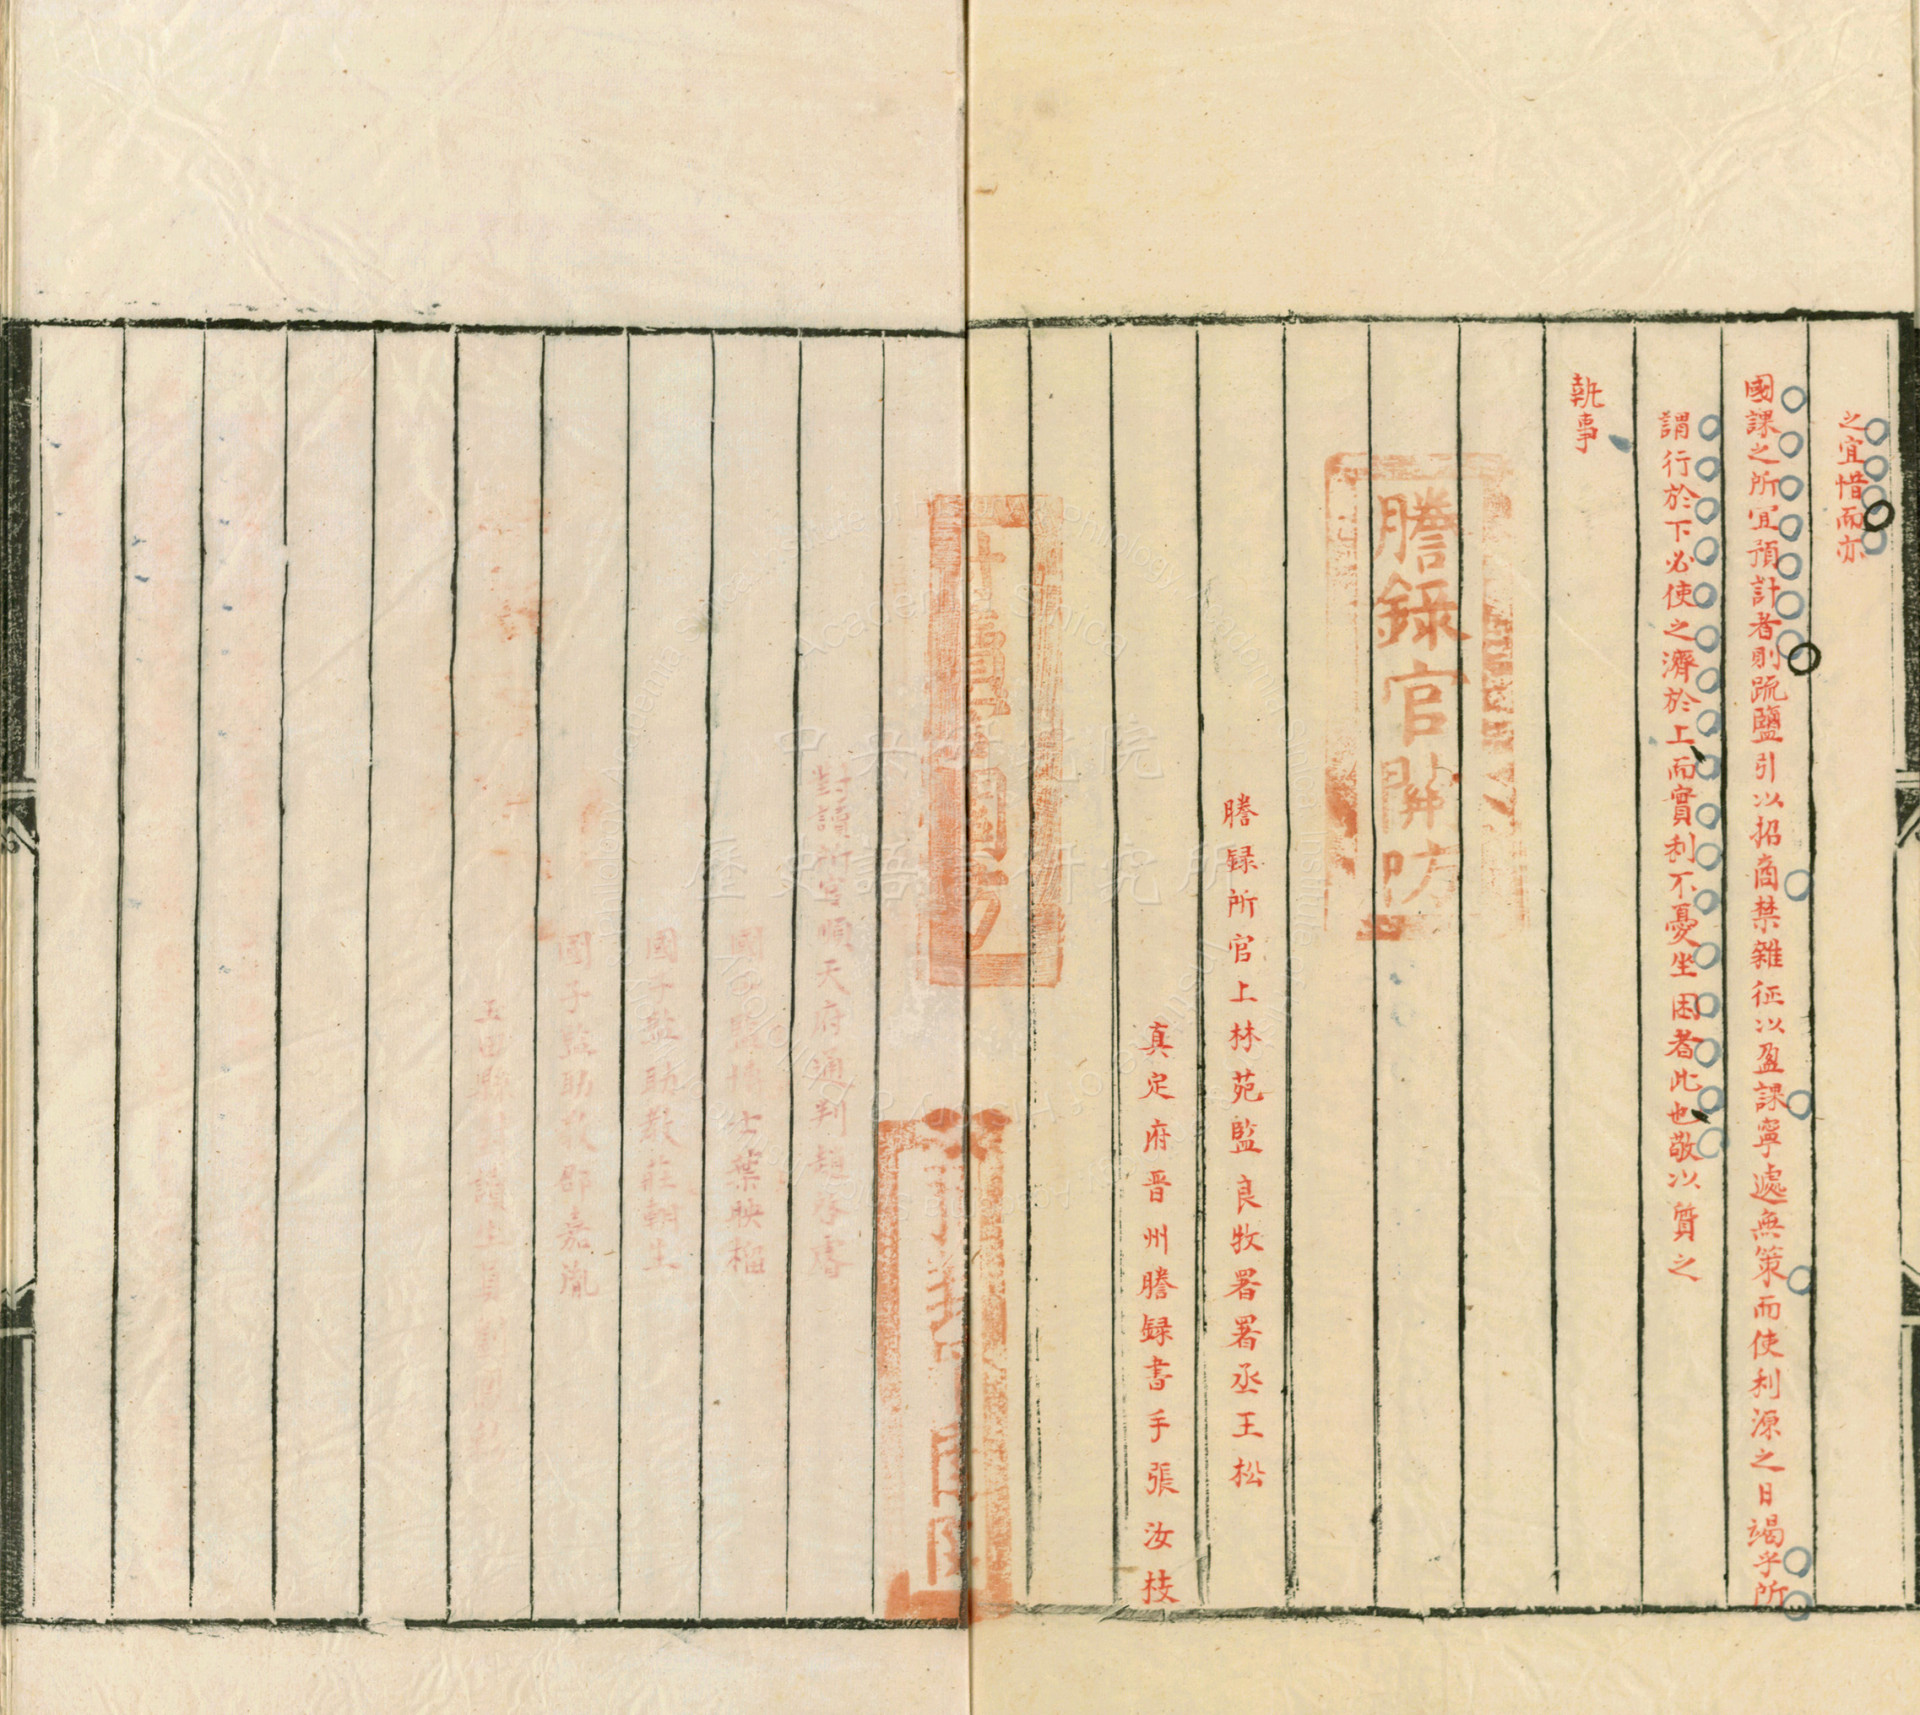 之宜惜而亦
國課之所宜預計者則疏鹽引以招商禁雜征以盈課寧處無策而使利源之日竭乎所
謂行於下必使之濟於上而實利不憂坐困者此也敬以質之
執事
謄錄官關防
謄録所官上林苑監良牧署署丞王松
真定府晋州謄録書手張汝枝
對讀所官順天府通判趙
國子監博士葉映榴
國子監助教莊朝生
國子監助教邵嘉胤
玉田縣對讀生員劉國
中央研究院
歷史語言研究所